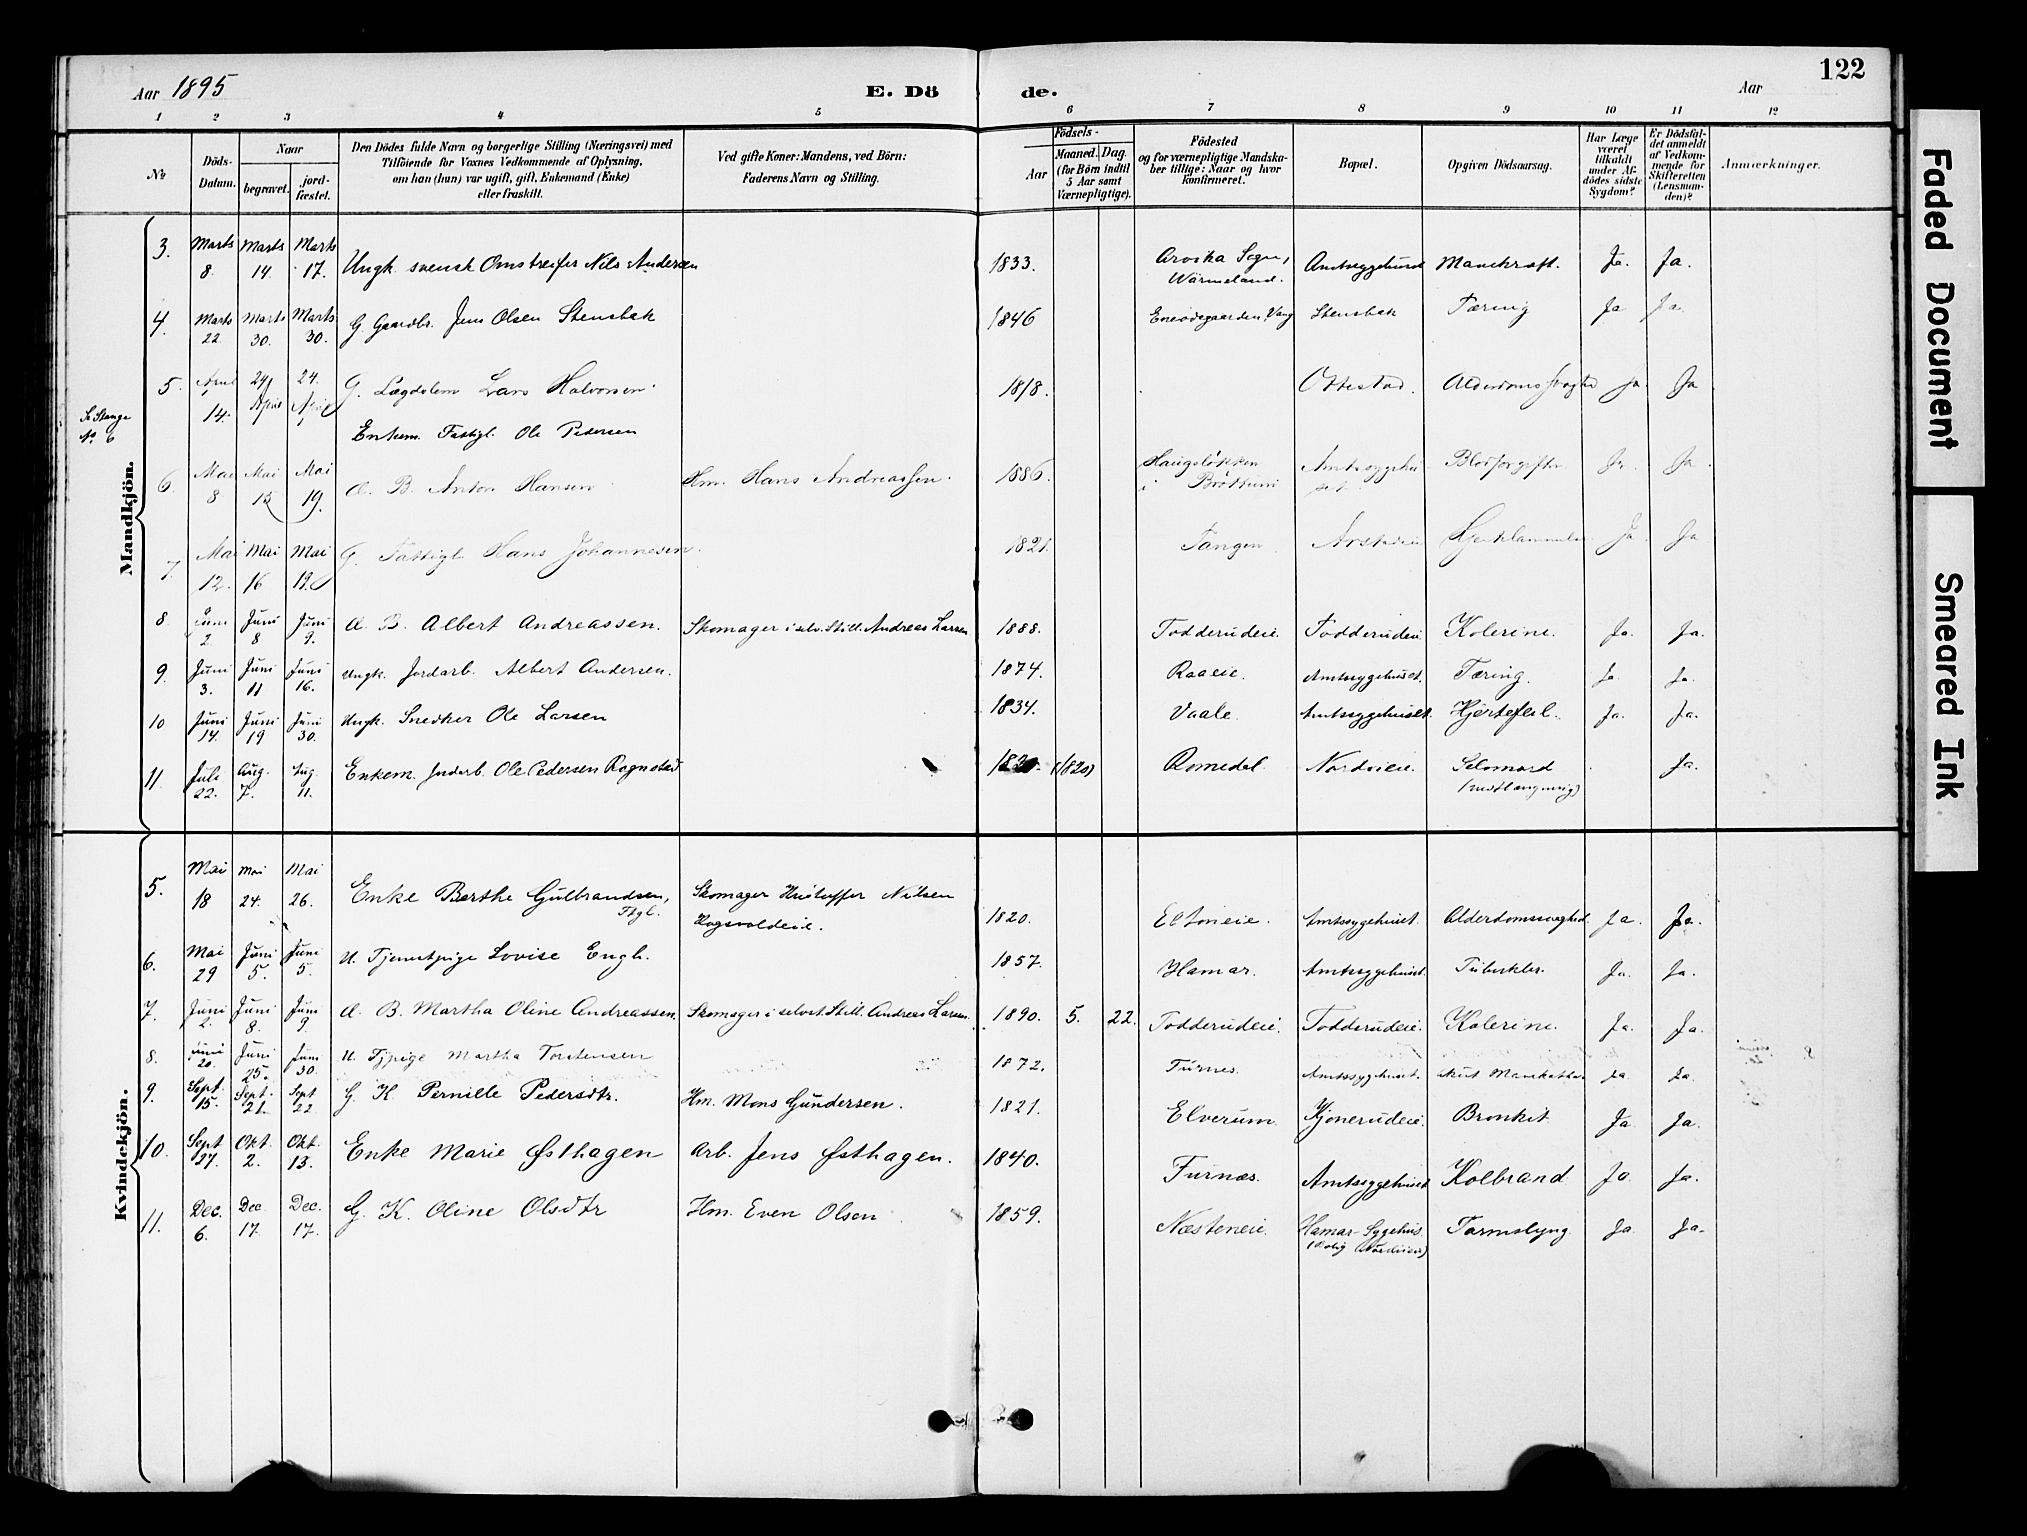 Aar 1895
E. Dö
de.
Aar
122
1 2 3 4 5 6 7 8 9 10 11 12
No
Döds-
Datum.
Naar
begravet.
jord-
fæstet.
Den Dödes fulde Navn og borgerlige Stilling (Næringsvei) med
Tilföiende for Voxnes Vedkommende af Oplysning,
om han (hun) var ugift, gift, Enkemand (Enke)
eller fraskilt.
Ved gifte Koner: Mandens, ved Börn:
Faderens Navn og Stilling.
Aar
Födsels-
Maaned. Dag.
(for Börn indtil
5 Aar samt
Værnepligtige).
Födested
og for værnepligtige Mandska-
ber tillige: Naar og hvor
konfirmeret.
Bopæl.
Opgiven Dödsaarsag.
Har Læge
været
tilkaldt
under Af-
dödes sidste
Sygdom?
Er Dödsfal-
det anmeldt
af Vedkom-
mende for
Skifteretten
(Lensman-
den)?
Anmærkninger.
Mandkjön.
3. Marts 8. Marts 14. Marts 17. Ungk. svensk Omstreifer Nils Andersen 1833. Sogn, Amtssygehuset Mavekræft. Ja. Ja.
Wärmeland.
4. Marts 22. Marts 30. Marts 30. G. Gaardbr. Jens Olsen Stensbak 1846 Vang Stensbak Tæring Ja Ja.
5. April 14. 24. April 24. April G. Lægdslem Lars Halvorsen 1818. Ottestad. Alderdomssvaghed Ja Ja
Se Stange
No. 6
Enkem. Fattigl. Ole Pedersen
6. Mai 8 Mai 15 Mai 19. A. B. Anton Hansen Hm. Hans Andreassen. 1886. Haugsløkken Amtssygehu- Ja. Ja.
i Brøttum set.
7. Mai 12. Mai 16 Mai 19. G. Fattigl. Hans Johannesen. 1821. Tangen. Ja. Ja
8. Juni 2. Juni 8 Juni 9. A. B. Albert Andreassen. Skomager i selv. Still. Andreas Larsen 1888. Todderudeie. Todderudeie. Kolerine. Ja. Ja.
9. Juni 3. Juni 11 Juni 16. Ungk. Jordarb. Albert Andersen. 1874. Raaeie. Amtssygehuset. Tæring. Ja Ja.
10 Juni 14. Juni 19 Juni 30. Ungk. Snedker Ole Larsen 1834. Vaale. Amtssygehuset. Hjertefeil. Ja. Ja.
11. Juli 22. Aug. 7. Aug. 11. Enkem. Jordarb. Ole Pedersen Rognstad 1820. (1820) Romedal. Nordvieie. Selvmord Ja.
(ved Hængning)
Kvindekjön.
5. Mai 18 Mai 24. Mai 26. Enke Berthe Gulbrandsen, Skomager Kristoffer Nilsen 1820. Eltoneie. Amtssygehuset. Alderdomssvaghed. Ja. Ja.
Ftgl. Kogsvoldeie.
6. Mai 29 Juni 5. Juni 5. U. Tjenestpige Lovise Engh. 1857. Hamar. Amtssygehuset. Tuberkler. Ja. Ja.
7. Juni 2. Juni 8. Juni 9. A. B. Martha Oline Andreassen. Skomager i selvst. Still. Andreas Larsen. 1890. 5. 22. Todderudeie. Todderudeie. Kolerine. Ja. Ja.
8. Juni 20. Juni 25. Juni 30. U. Tjpige Martha Torstensen 1872. Furnes. Amtssygehuset. Ja. Ja.
9. Sept. 15. Sept. 21. Sept 22 G. K. Pernille Pedersdtr. Hm. Mons Gundersen. 1821. Elverum. Kjonerudeie. Bronkit. Ja Ja.
10. Sept 27. Okt. 2. Okt. 13. Enke Marie Østhagen Arb. Jens Østhagen. 1840. Furnæs. Amtssygehuset Kolbrand. Ja. Ja.
11. Dec. 6. Dec. 17. Dec. 17. G. K. Oline Olsdtr Hm. Even Olsen 1859. Næsteneie. Hamar Sygehus. Tarmslyng. Ja. Ja.
(Bolig Nordvieie)
Faded Document
Smeared Ink